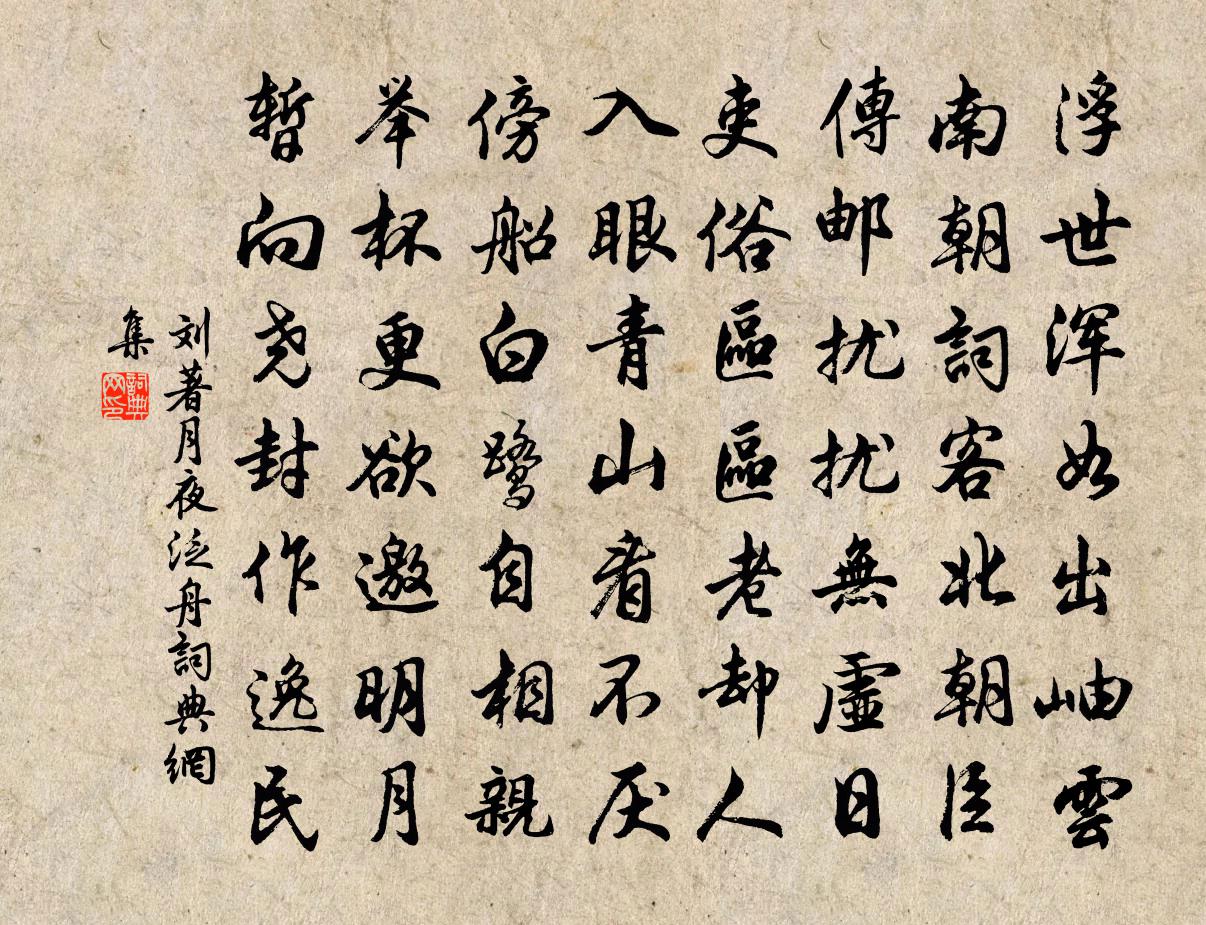 浮世浑如出岫雲
南朝詞客北朝臣
傳邮扰扰無虛日
吏俗區區老却人
入眼青山看不厌
傍船白鹭自相親
举杯更欲邀明月
暫向尧封作逸民
刘著月夜泛舟詞典網
集
詞典
网印